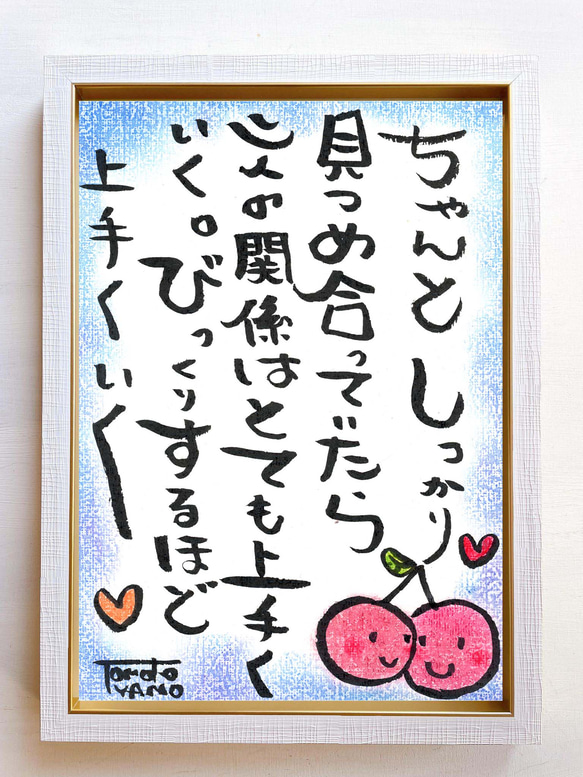 ちゃんと しっかり
見つめ合ってたら
二人の関係はとても上手く
いく。びっくりするほど
上手くいく
YANO